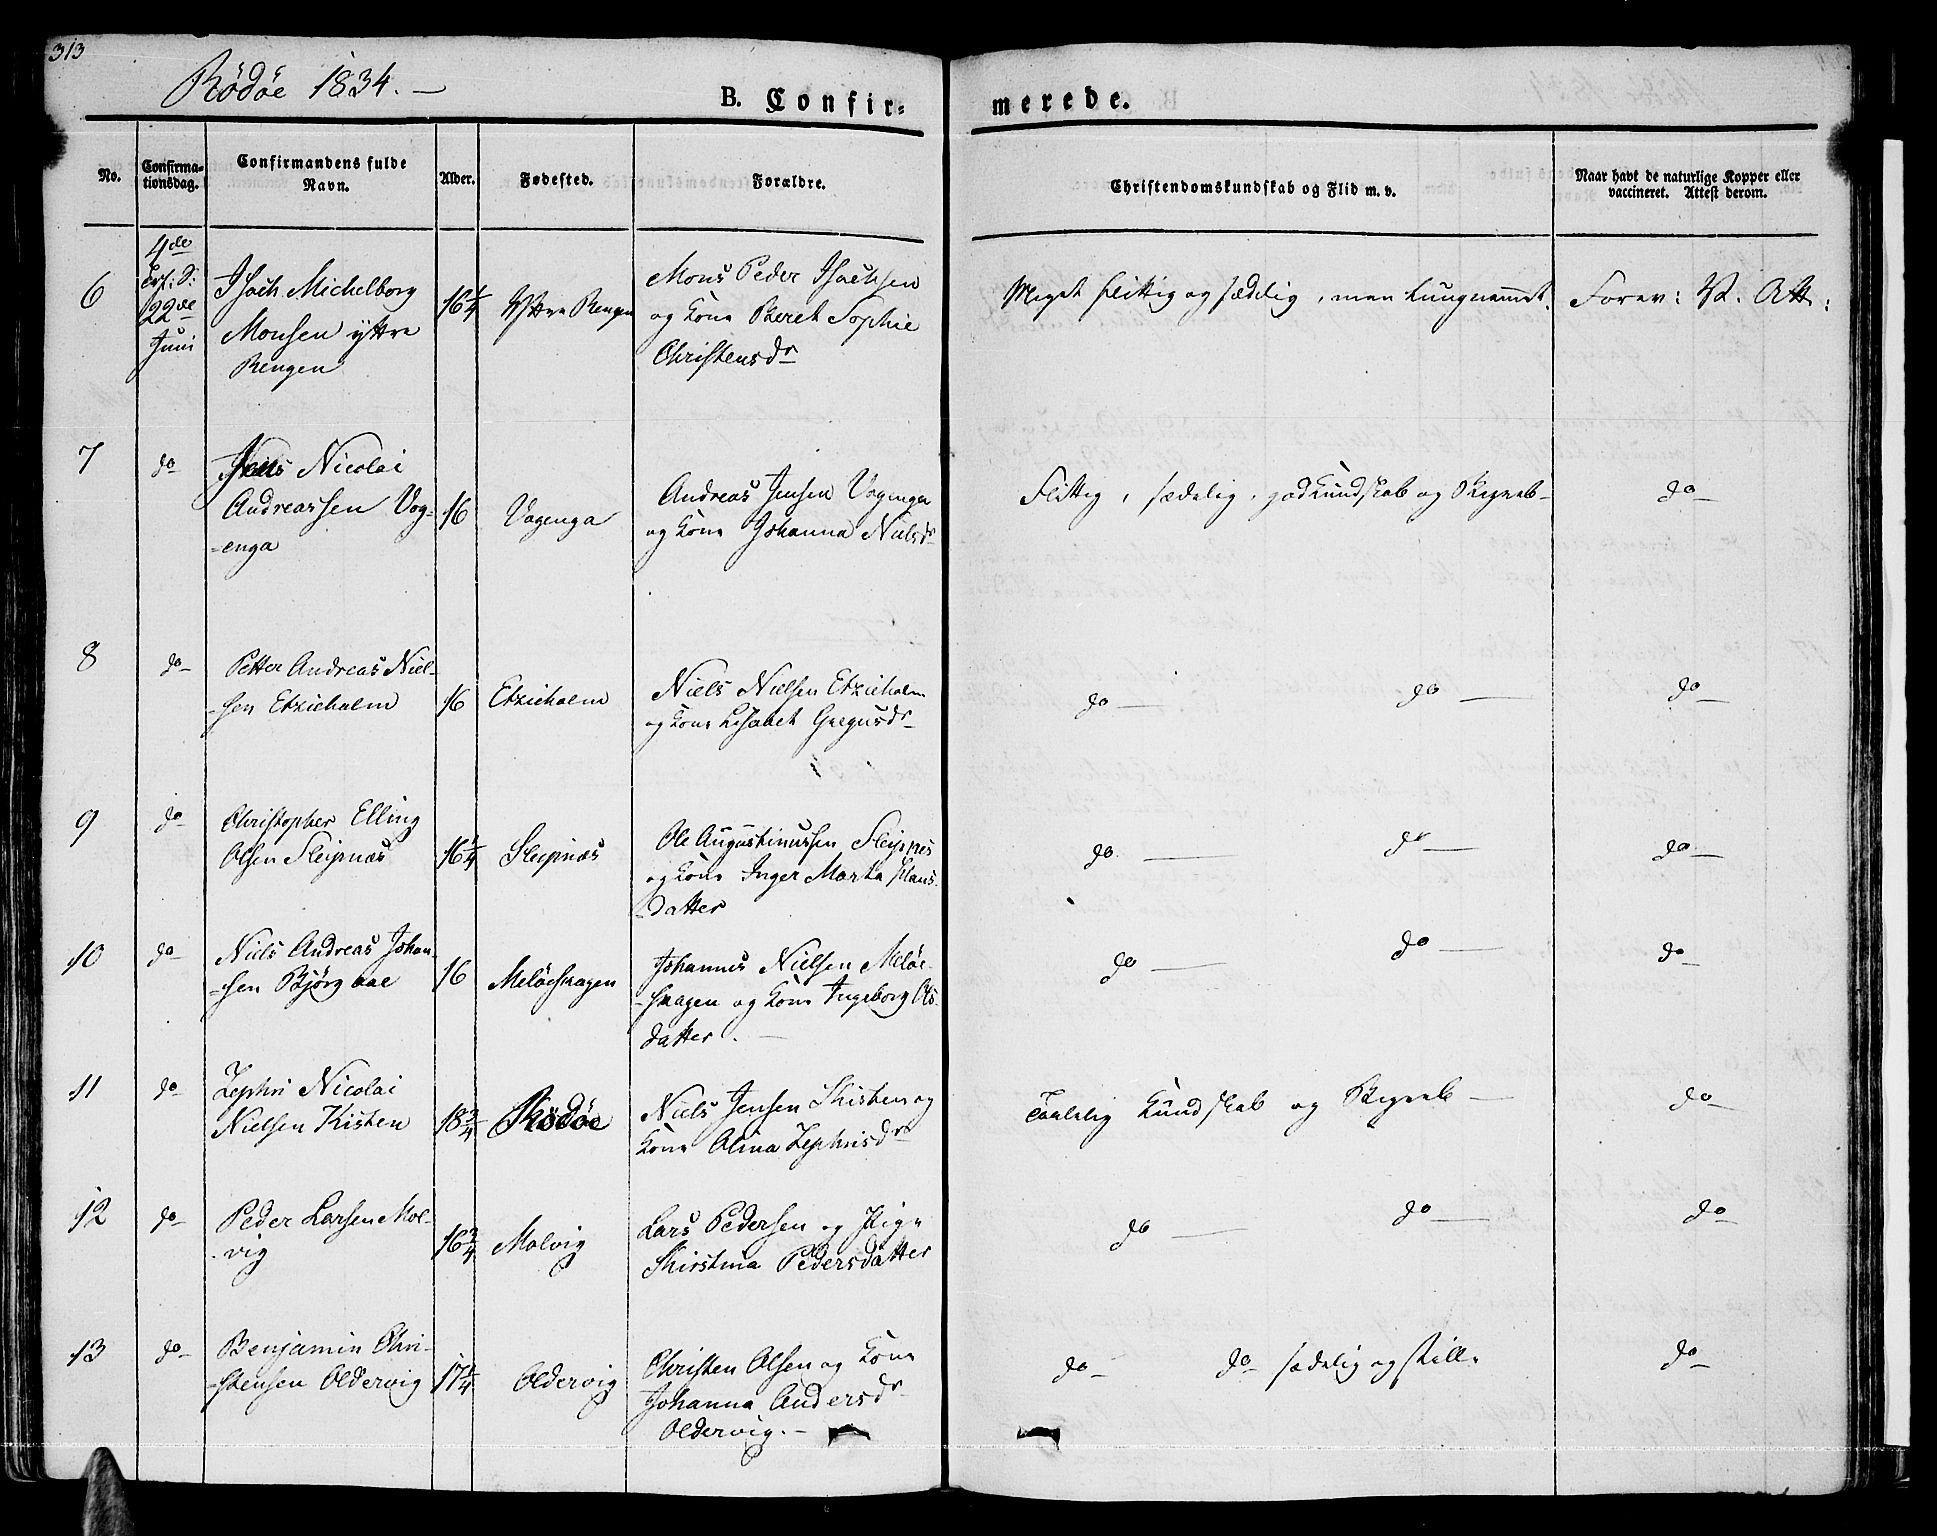 313
Rödöe 1834. —
B. Confir-
merede.
No.
Confirma-
tionsdag.
Confirmandens fulde
Navn.
Alder.
Fødested.
Forældre.
Christendomskundskab og Flid m. v.
Naar havt de naturlige Kopper eller
vaccineret. Attest derom.
6
4de
22de
Juni
Isach Michelborg
Monsen yttre
Rengen
16 1/4
Yttre Rengen
Mons Peder Isachsen
og Kone Beret Sophie
Christensdr
Meget flittig og sædelig, men tungnemmet.
Forev: V. Att:
7
do
Nicolai
Andreassen Vog-
-enga
16
Vogenga
Andreas Jensen Vogenga
og Kone Johanna Nielsdr
Flittig, sædelig, god Kundskab og Begreb-
do
8
do
Petter Andreas Niel-
-sen Etzieholm
16
Etzieholm
Niels Nielsen Etzieholm
og Kone Lisabet Gregusdr
do —
do —
do
9
do
Christopher Elling
Olsen Sleipnæs
16 1/4
Sleipnæs
Ole Augustinussen Sleipnes
og Kone Inger Marta Hans-
-datter
do —
do —
do
10
do
Niels Andreas Johan-
-sen Bjørg aae
16
Meløeskagen
Johannes Nielsen Meløe-
-skagen og Kone Ingeborg Ols-
datter. —
do —
do —
do
11
do
Zephri Nicolai
Nielsen Kisten
18 3/4
Rödöe
Niels Jensen Skisten og
Kone Olina Zephrisdr
Taalelig Kundskab og Begreb —
do —
12
do
Peder Larsen Mol-
-vig
16 3/4
Molvig
Lars Pedersen og Pige
Kirstina Pedersdatter
do —
do —
do
13
do
Benjamin Chri-
-stensen Oldervig
17 1/4
Oldervig
Christen Olsen og Kone
Johanna Andersdr
Oldervig. —
do
do sædelig og stille
do